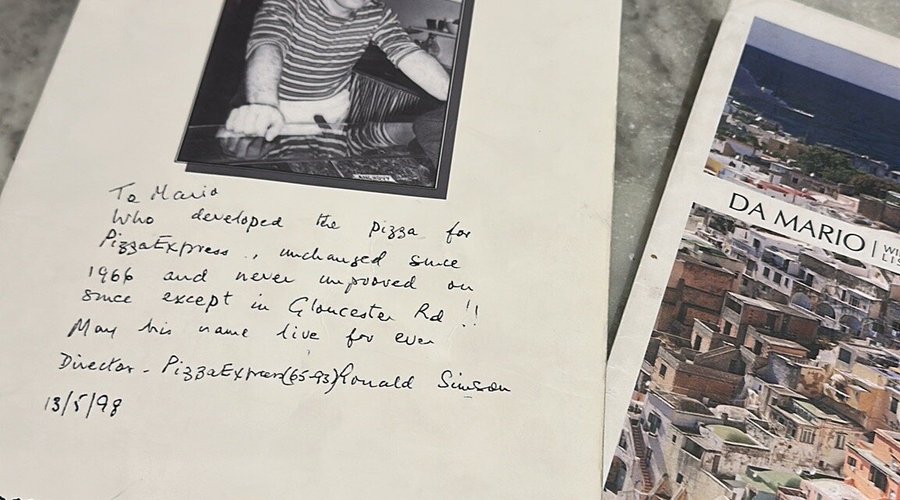 To Mario
Who developed the pizza for
PizzaExpress., unchanged since
1966 and never improved on
since except in Gloucester Rd !!
May his name live for ever
Director - PizzaExpress(65-93) Ronald Simson
13/5/98
DA MARIO |